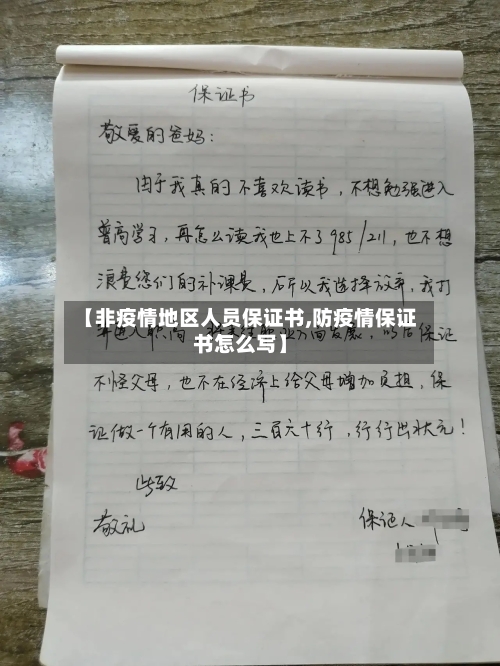 保证书
敬爱的爸妈：
由于我真的不喜欢读书，不想勉强进入
普高学习，再怎么读我也上不了985/211，也不想
浪费您们的补课费，所以我选择放弃，我打
【非疫情地区人员保证书,防疫情保证
书怎么写】
不怪父母，也不在经济上给父母增加负担，保
证做一个有用的人，三百六十行，行行出状元！
此致
敬礼
保证人